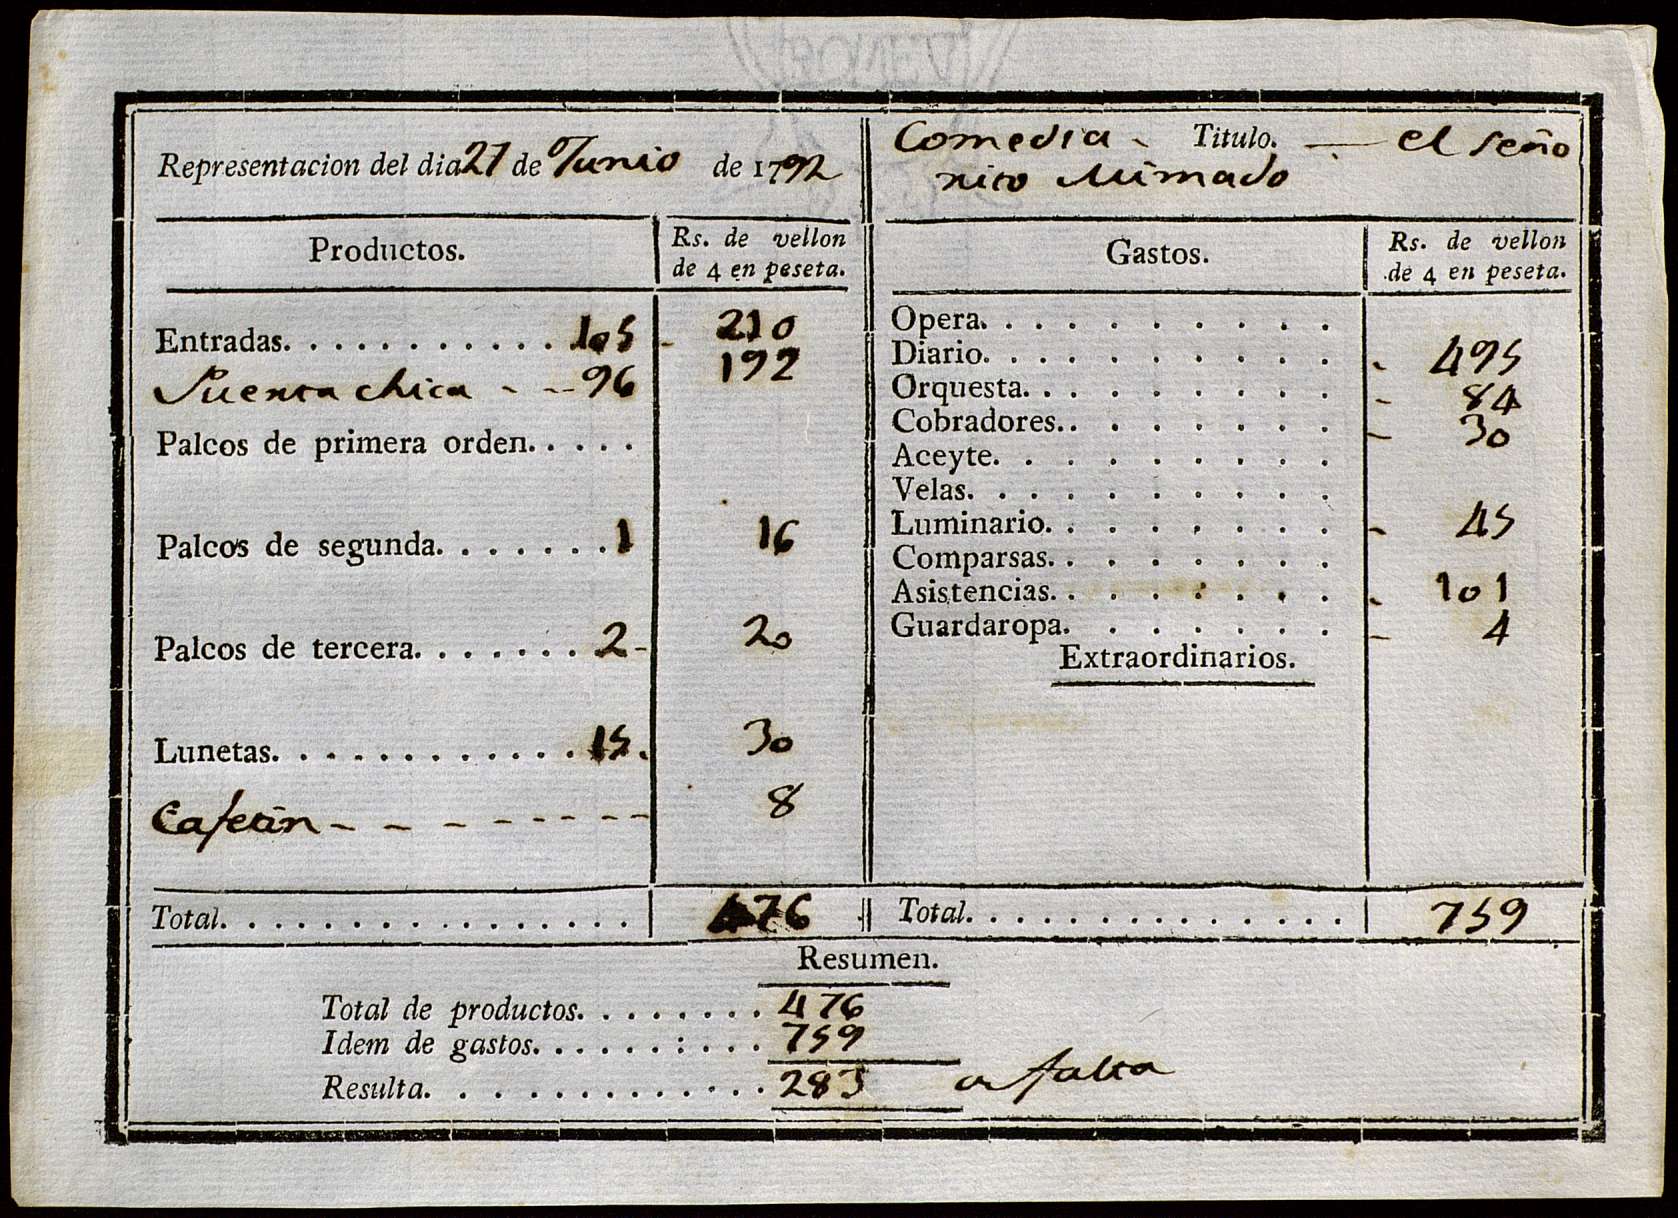 Representacion del dia 27 de Junio de 1792
Comedia - Titulo. - el seño
rito Mimado
Productos.
Rs. de vellon
de 4 en peseta.
Entradas. . . . . . . . . . . . 105 - 210
Puerta chica - -- 96 192
Palcos de primera orden. . . . .
Palcos de segunda. . . . . . . 1 16
Palcos de tercera. . . . . . . 2 - 20
Lunetas. . . . . . . . . . . . . 15. 30
Cafetin - - - - - - - - - 8
Total. . . . . . . . . . . . . . . . 476
Gastos.
Rs. de vellon
de 4 en peseta.
Opera. . . . . . . . . . .
Diario. . . . . . . . . . . - 495
Orquesta. . . . . . . . . . - 84
Cobradores. . . . . . . . . - 30
Aceyte. . . . . . . . . . .
Velas. . . . . . . . . . . .
Luminario. . . . . . . . . - 45
Comparsas. . . . . . . . .
Asistencias. . . . . . . . . - 101
Guardaropa. . . . . . . . - 4
Extraordinarios.
Total. . . . . . . . . . . . . . . 759
Resumen.
Total de productos. . . . . . . . 476
Idem de gastos. . . . . . : . . . 759
Resulta. . . . . . . . . . . . . 283 a falta